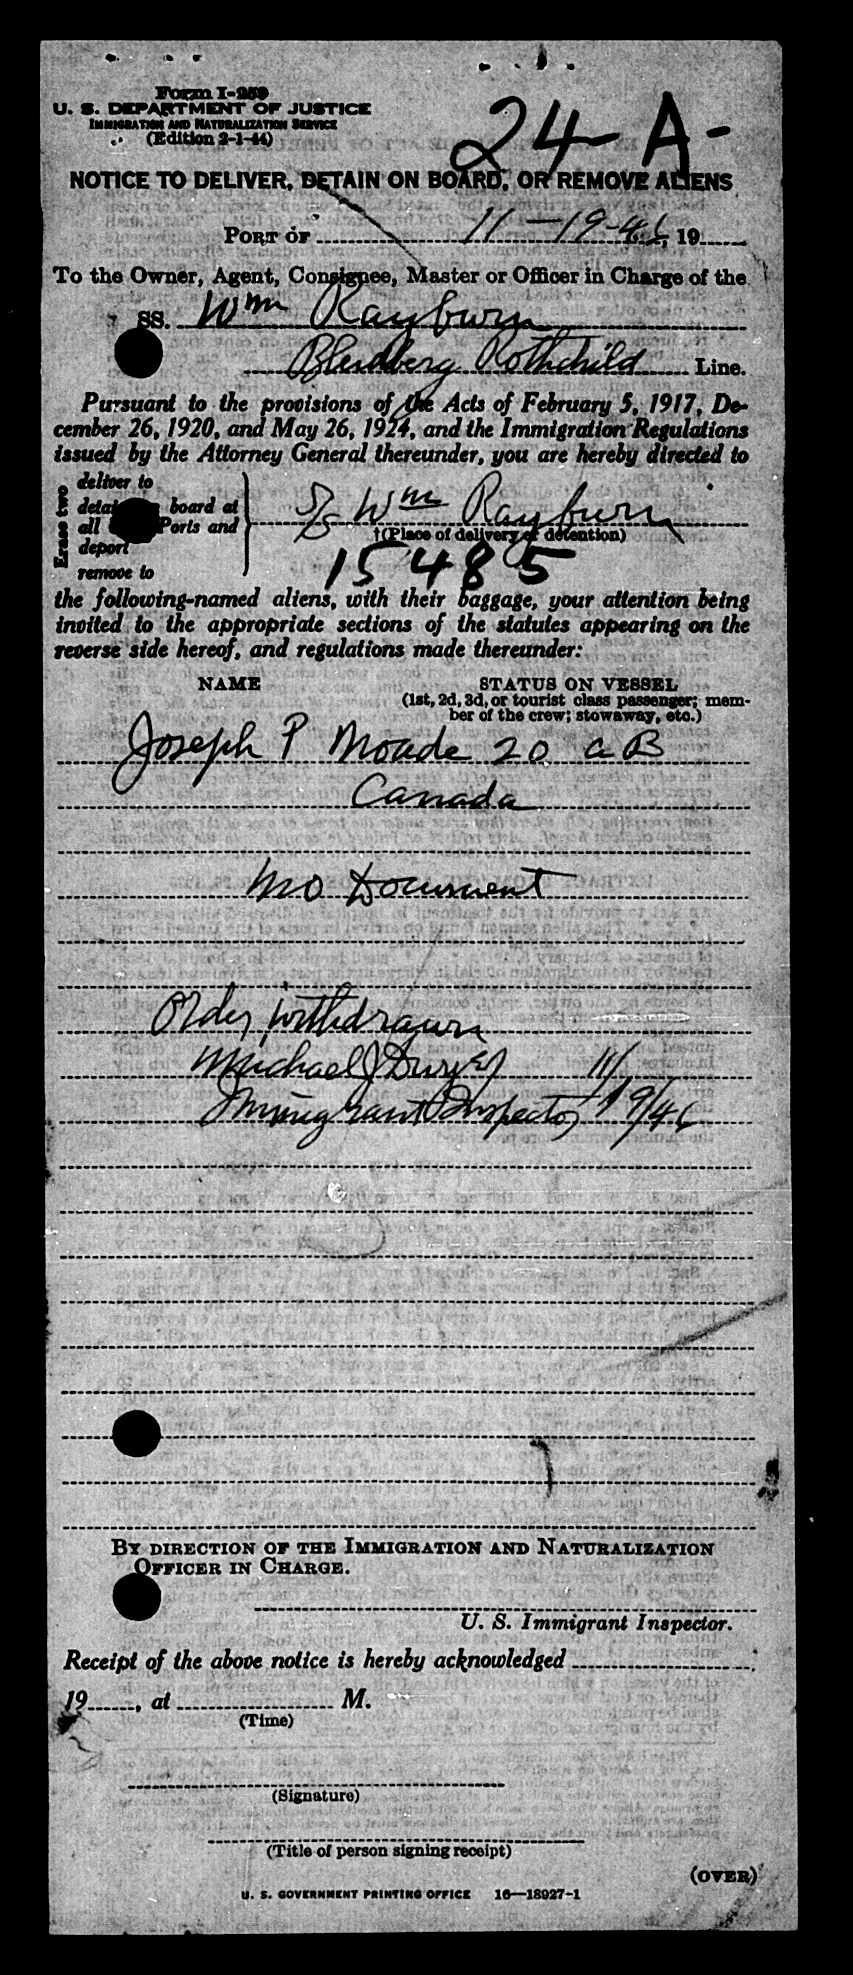 Form I-259
U. S. DEPARTMENT OF JUSTICE
IMMIGRATION AND NATURALIZATION SERVICE
(Edition 2-1-44)
24-A-
NOTICE TO DELIVER, DETAIN ON BOARD, OR REMOVE ALIENS
PORT OF 11-19-46, 19
To the Owner, Agent, Consignee, Master or Officer in Charge of the
SS. Wm Rayburn
Rothchild Line.
Pursuant to the provisions of the Acts of February 5, 1917, De-
cember 26, 1920, and May 26, 1924, and the Immigration Regulations
issued by the Attorney General thereunder, you are hereby directed to
Erase two
deliver to
detain board at
all Ports and
deport
remove to
S/S Wm Rayburn
†(Place of delivery or detention)
15485
the following-named aliens, with their baggage, your attention being
invited to the appropriate sections of the statutes appearing on the
reverse side hereof, and regulations made thereunder:
NAME STATUS ON VESSEL
(1st, 2d, 3d, or tourist class passenger; mem-
ber of the crew; stowaway, etc.)
Joseph P Moade 20 a B
Canada
no Document
Order withdrawn
Michael J Dwyer 11/
Immigrant Inspector 19/46
BY DIRECTION OF THE IMMIGRATION AND NATURALIZATION
OFFICER IN CHARGE.
U. S. Immigrant Inspector.
Receipt of the above notice is hereby acknowledged
19, at M.
(Time)
(Signature)
(Title of person signing receipt)
(OVER)
U. S. GOVERNMENT PRINTING OFFICE 16—18927-1